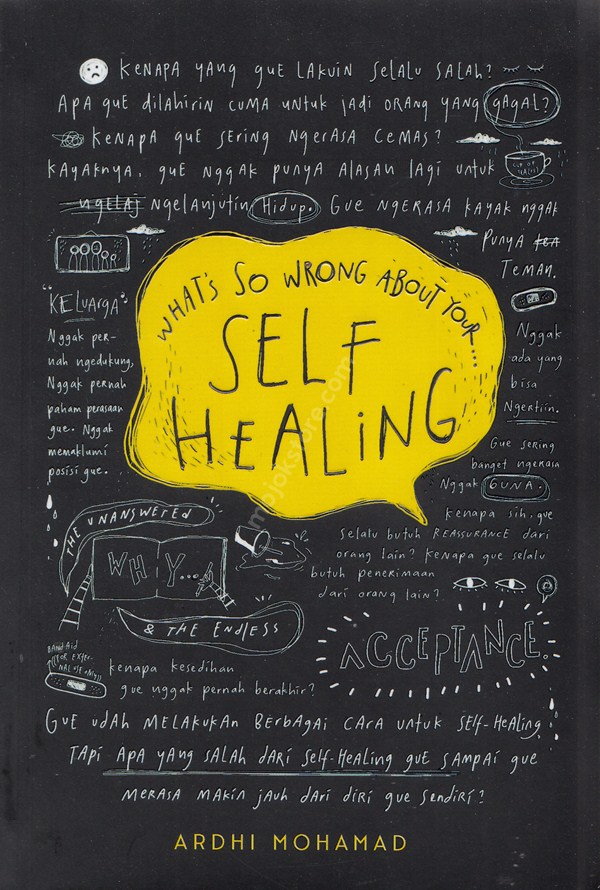 KENAPA YANG GUE LAKUIN SELALU SALAH?
APA GUE DILAHIRIN CUMA UNTUK JADI ORANG YANG GAGAL?
KENAPA GUE SERING NGERASA CEMAS?
KAYAKNYA, GUE NGGAK PUNYA ALASAN LAGI UNTUK
NGELAJ NGELANJUTIN HIDUP. GUE NGERASA KAYAK NGGAK
PUNYA TEA
TEMAN.
WHAT'S SO WRONG ABOUT YOUR...
SELF
HEALING
"KELUARGA"
Nggak per-
nah ngedukung,
Nggak pernah
paham perasaan
gue. Nggak
memaklumi
posisi gue.
Nggak
ada yang
bisa
Ngertiin.
Gue sering
banget ngerasa
Nggak GUNA.
kenapa sih, gue
selalu butuh REASSURANCE dari
orang lain? kenapa gue selalu
butuh penerimaan
dari orang lain?
THE UNANSWERED
WHY...
& THE ENDLESS
ACCEPTANCE.
BAND AID
kenapa kesedihan
gue nggak pernah berakhir?
GUE UDAH MELAKUKAN BERBAGAI CARA UNTUK SELF-HEALING.
TAPI APA YANG SALAH DARI SELF-HEALING GUE SAMPAI GUE
MERASA MAKIN JAUH DARI DIRI GUE SENDIRI?
ARDHI MOHAMAD
mojokstore.com